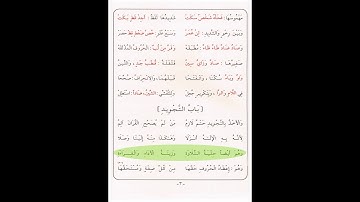 مَهْمُوسُهَا: فَحَثَّهُ شَخْصٌ سَكَتْ شَدِيدُهَا لَفْظُ: أَجِدْ قَطٍ بَكَتْ
وَبَيْنَ رِخْوٍ وَالشَّدِيدِ: لِنْ عُمَرْ وَسَبْعُ عُلْوٍ: خُصَّ ضَغْطٍ قِظْ حَصَرْ
وَصَادُ ضَادٌ طَاءُ ظَاءٌ: مُطْبَقَهْ وَفَرَّ مِنْ لُبِّ: الْحُرُوفُ الْمُذْلَقَهْ
صَفِيرُهَا: صَادٌ وَزَايٌ سِينُ قَلْقَلَةٌ: قُطْبُ جَدٍّ، وَاللِّينُ
وَاوٌ وَيَاءٌ سُكِّنَا وَانْفَتَحَا قَبْلَهُمَا، وَالِانْحِرَافُ: صُحِّحَا
فِي اللَّامِ وَالرَّا، وَبِتَكْرِيرٍ جُعِلْ وَلِلتَّفَشِّي: الشِّينُ، ضَادًا: اسْتُطِلْ
[ بَابُ التَّجْوِيدِ ]
وَالْأَخْذُ بِالتَّجْوِيدِ حَتْمٌ لَازِمُ مَنْ لَمْ يُصَحِّحِ الْقُرَانَ آثِمُ
لِأَنَّهُ بِهِ الْإِلَٰهُ أَنْزَلَا وَهَٰكَذَا مِنْهُ إِلَيْنَا وَصَلَا
وَهُوَ أَيْضًا حِلْيَةُ التِّلَاوَةِ وَزِينَةُ الْأَدَاءِ وَالْقِرَاءَةِ
وَهُوَ: إِعْطَاءُ الْحُرُوفِ حَقَّهَا مِنْ كُلِّ صِفَةٍ وَمُسْتَحَقَّهَا
-٣-